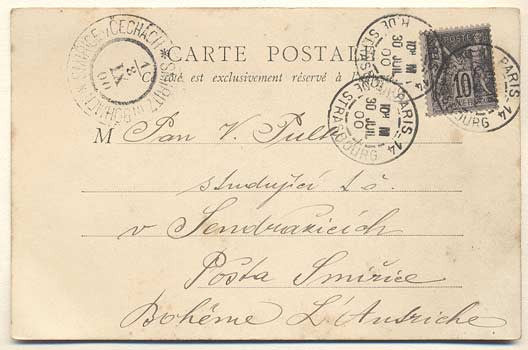 CARTE POSTALE
Ce côté est exclusivement réservé à l'
SMIRITZ IN BÖHMEN * SMIŘICE v ČECHÁCH *
1
8
IX
00
PARIS 14
R. DE STRASBOURG
10E M
30 JUIL
00
PARIS 14
R. DE STRASBOURG
10E M
30 JUIL
00
POSTE
10
PARIS 14
M Pan V. Pulk
studující t. č.
v Sendražicích
Pošta Smiřice
Bohême L'Autriche.